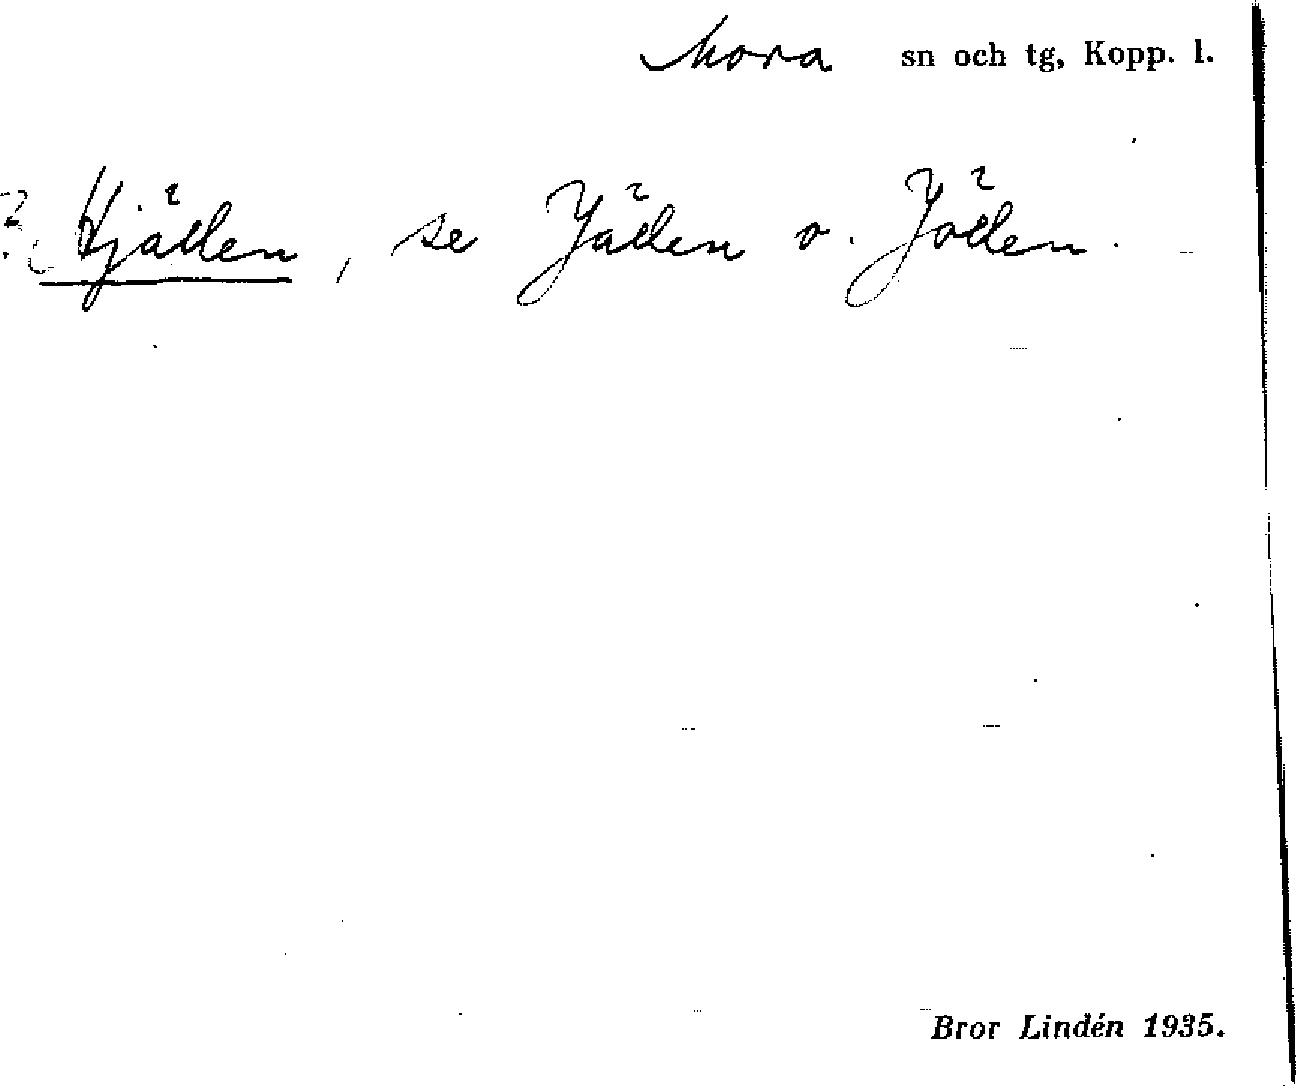 Mora sn och tg, Kopp. l.
Hjällen, se Jällen o. Jöllen.
Bror Lindén 1935.